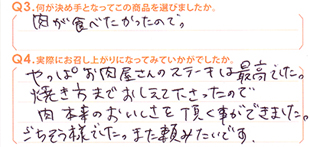 Q3.何が決め手となってこの商品を選びましたか。
肉が食べたかったので。
Q4.実際にお召し上がりになってみていかがでしたか。
やっぱお肉屋さんのステーキは最高でした。
焼き方までおしえて下さったので
肉本来のおいしさを頂く事ができました。
ごちそう様でした。また頼みたいです。